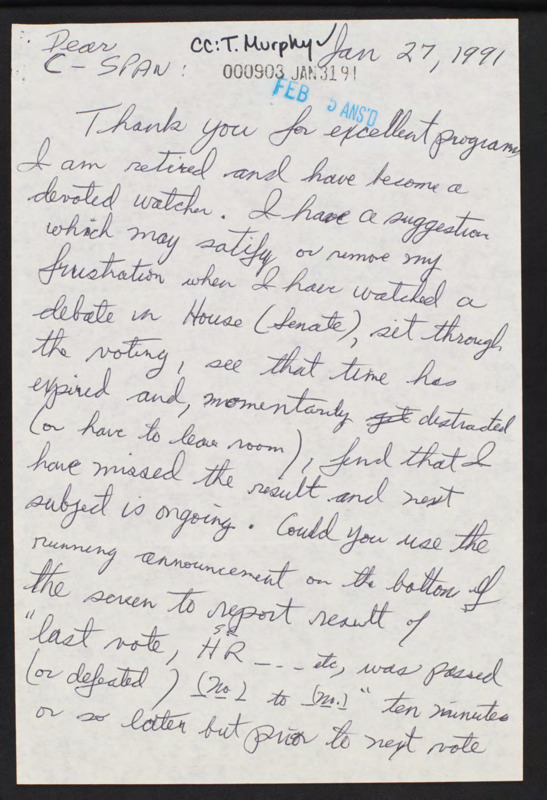 Dear CC: T. Murphy ✓ Jan 27, 1991
C-SPAN: 000903 JAN 31 91
FEB 5 ANS'D
Thank you for excellent programs
I am retired and have become a
devoted watcher. I have a suggestion
which may satify or remove my
frustration when I have watched a
debate in House (Senate), sit through
the voting, see that time has
expired and, momentarily distracted
(or have to leave room), find that I
have missed the result and next
subject is ongoing. Could you use the
running announcement on the bottom of
the screen to report result of
SR
"last vote, HR _ _ _ etc, was passed
(or defeated) (no.) to (no.)" ten minutes
or so later but prior to next vote